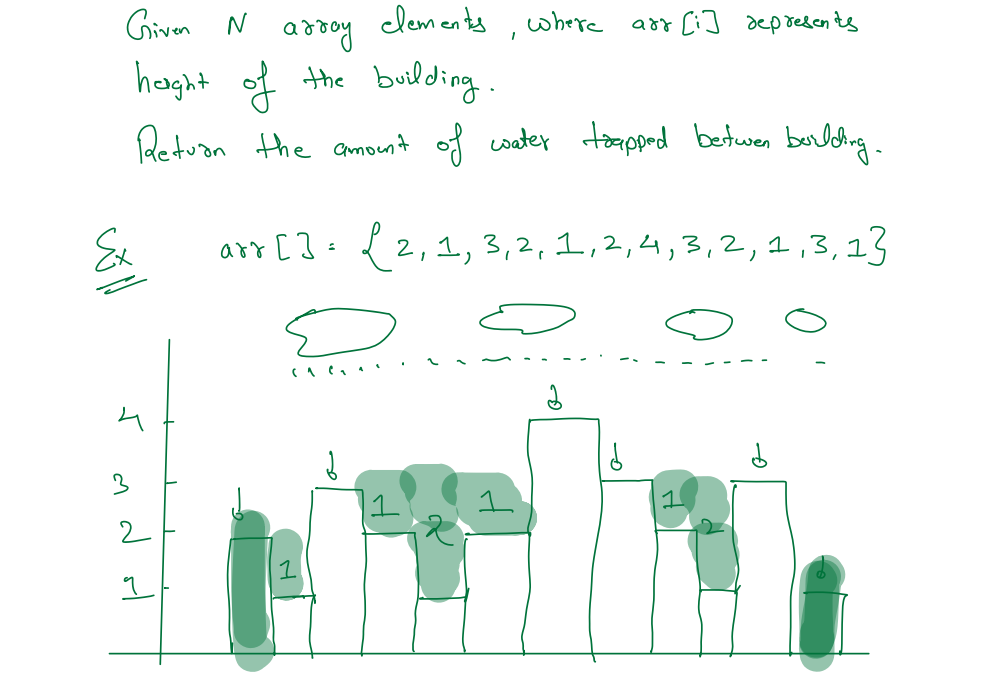 Given N array elements, where arr[i] represents
height of the building.
Return the amount of water trapped betwen building.
Ex arr[] = {2, 1, 3, 2, 1, 2, 4, 3, 2, 1, 3, 1}
4
3
2
1
1
1
2
1
1
2